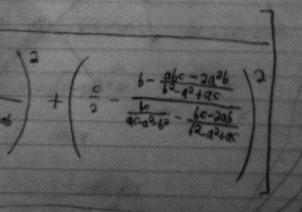 )² + ( c/2 - (b - (abc - 2a²b)/(b² - a² + ac)) / (bc/(ac - a² - b²) - (bc - 2ab)/(b² - a² + ac)) )² ]